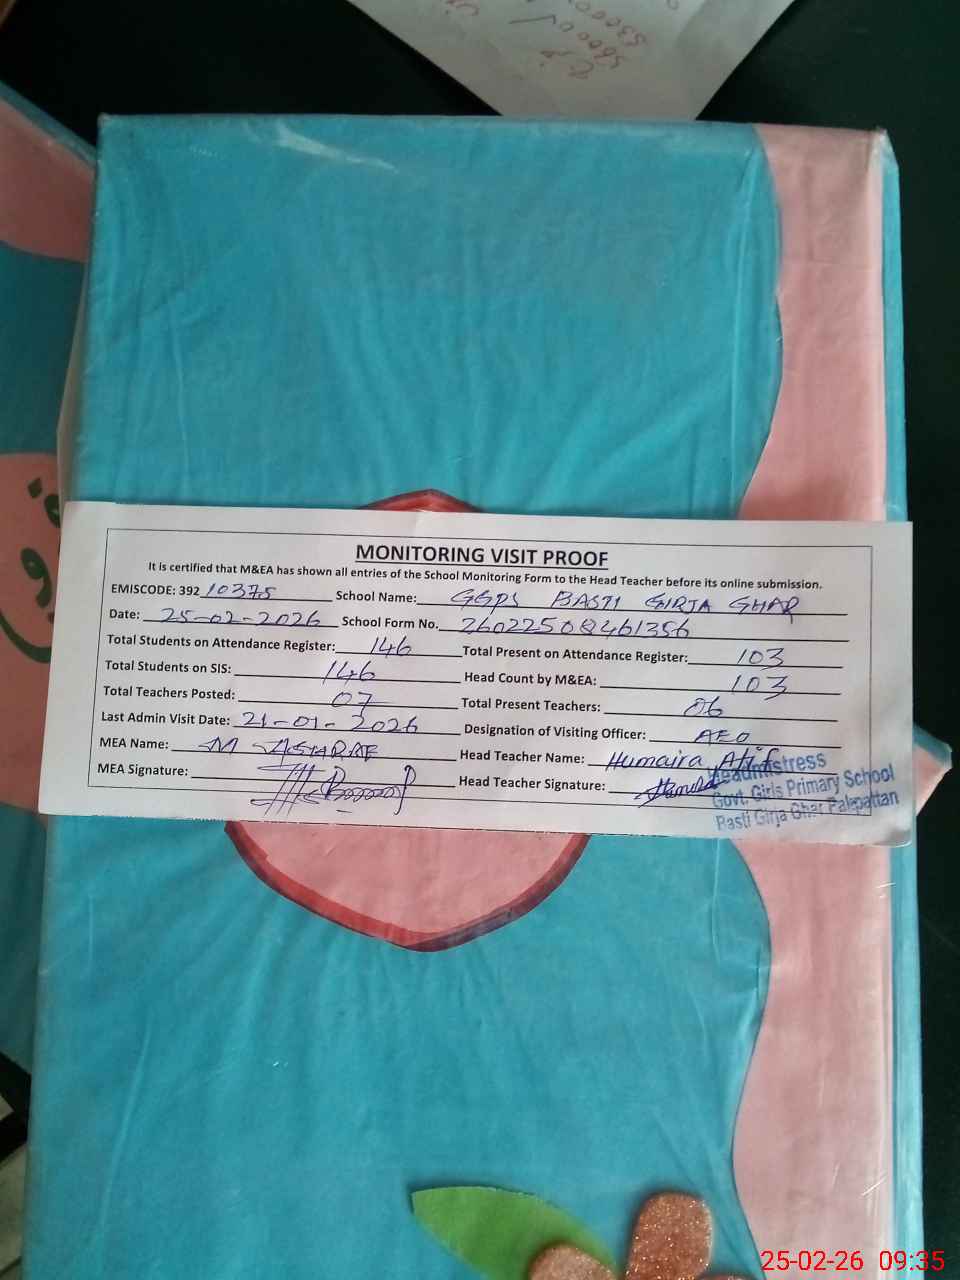 56000/
53000
MONITORING VISIT PROOF
It is certified that M&EA has shown all entries of the School Monitoring Form to the Head Teacher before its online submission.
EMISCODE: 392 10375 School Name: GGPS BASTI GIRJA GHAR
Date: 25-02-2026 School Form No. 26022508461356
Total Students on Attendance Register: 146 Total Present on Attendance Register: 103
Total Students on SIS: 146 Head Count by M&EA: 103
Total Teachers Posted: 07 Total Present Teachers: 06
Last Admin Visit Date: 21-01-2026 Designation of Visiting Officer: AEO
MEA Name: M ASHARAF Head Teacher Name: Humaira Atif
MEA Signature: Head Teacher Signature:
Headmistress
Govt. Girls Primary School
Basti Girja Ghar Pakpattan
25-02-26 09:35